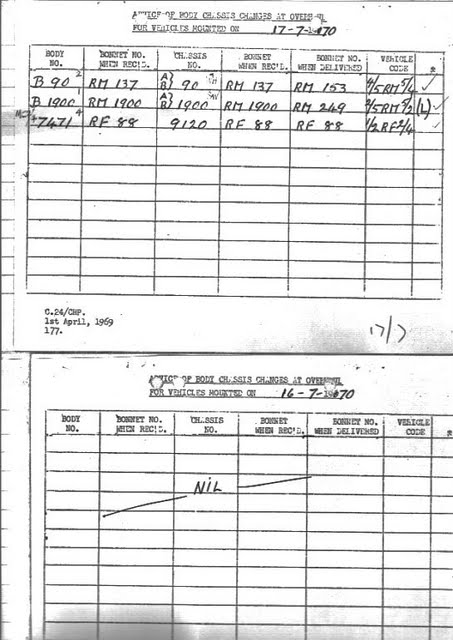 ADVICE OF BODY CHASSIS CHANGES AT OVERHAUL
FOR VEHICLES MOUNTED ON 17-7-1970
BODY NO. BONNET NO. WHEN REC'D. CHASSIS NO. BONNET WHEN REC'D. BONNET NO. WHEN DELIVERED VEHICLE CODE *
B 90 2 RM 137 A} B} 90 RM 137 RM 153 4/5RM 5/4 ✓
B 1900 1 RM 1900 A} B} 1900 RM 1900 RM 249 4/5RM 5/2 (L) ✓
7471 4 RF 88 9120 RF 88 RF 88 1/2 RF 2/4 ✓
C.24/CHP.
1st April, 1969
177.
17/7
ADVICE OF BODY CHASSIS CHANGES AT OVERHAUL
FOR VEHICLES MOUNTED ON 16-7-1970
BODY NO. BONNET NO. WHEN REC'D. CHASSIS NO. BONNET WHEN REC'D. BONNET NO. WHEN DELIVERED VEHICLE CODE *
NIL